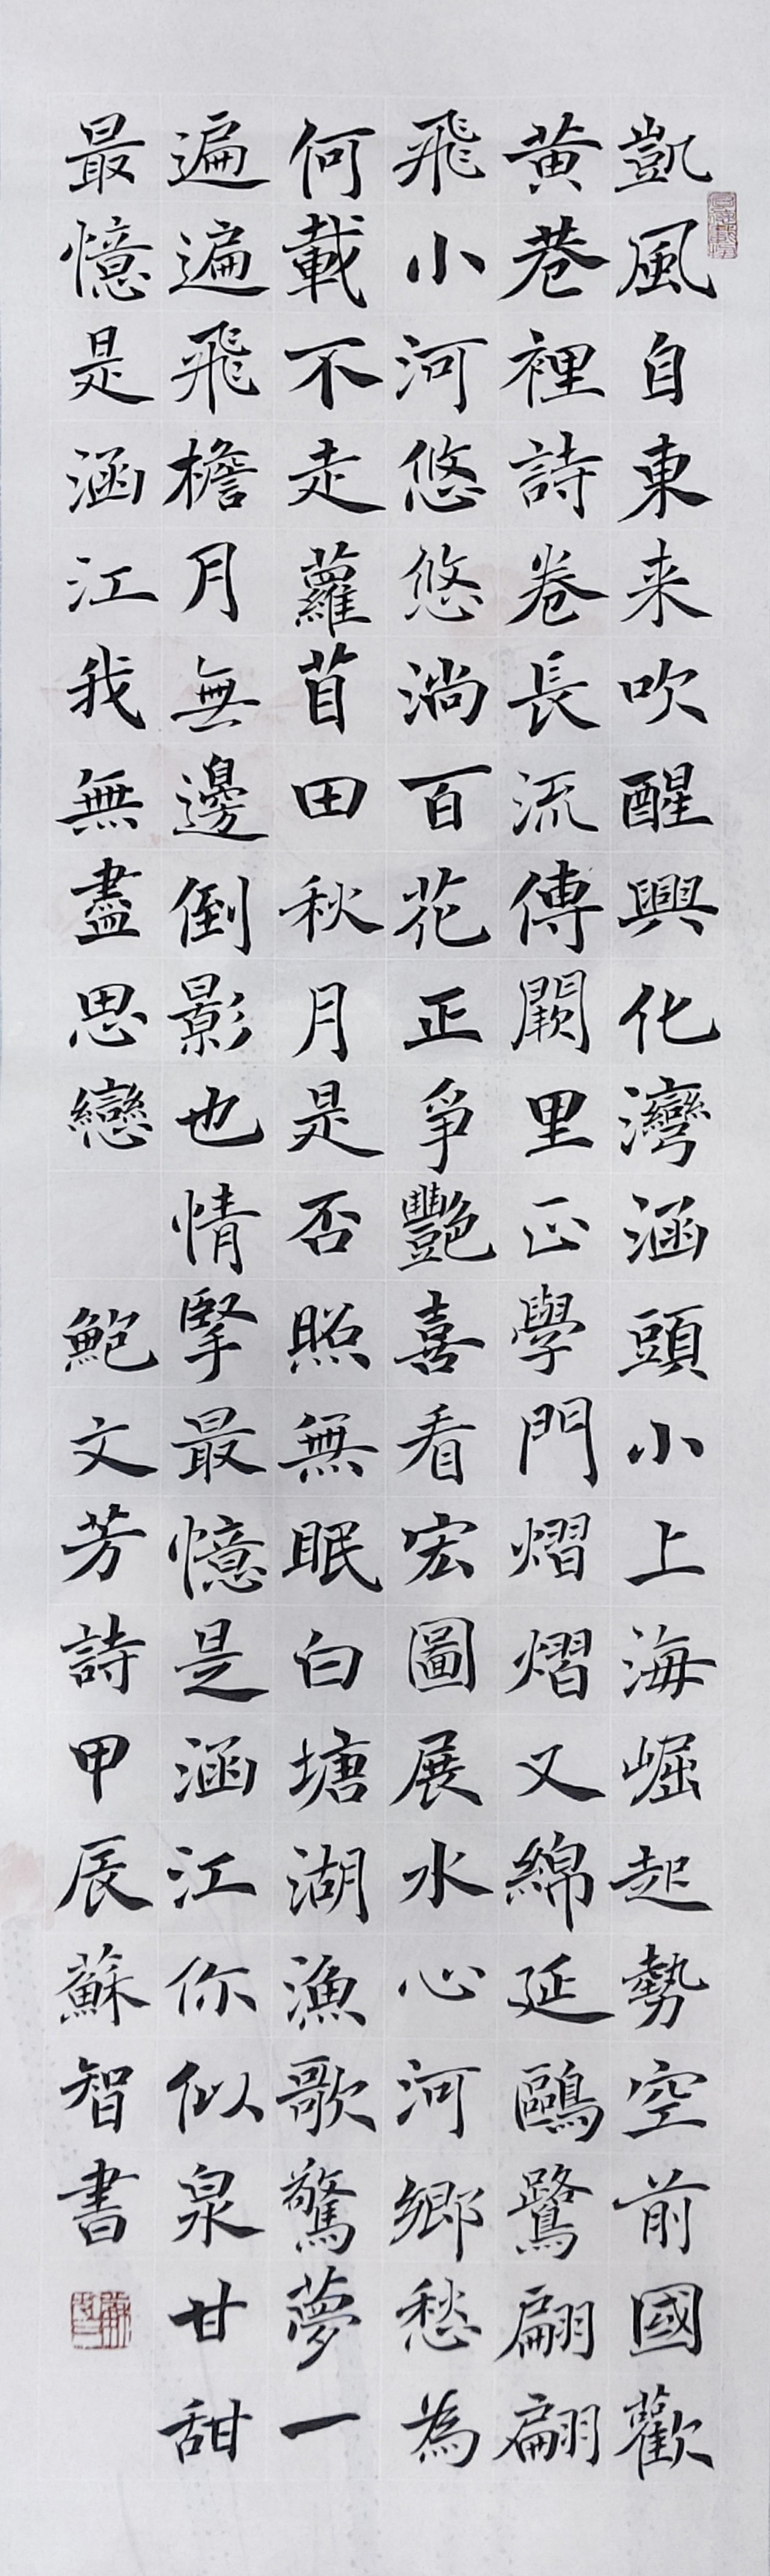 凱風自東来吹醒興化灣涵頭小上海崛起勢空前國歡
黄巷裡詩卷長流傳闕里正學門熠熠又綿延鷗鷺翩翩
飛小河悠悠淌百花正爭艷喜看宏圖展水心河鄉愁為
何載不走蘿苜田秋月是否照無眠白塘湖漁歌驚夢一
遍遍飛檐月無邊倒影也情掔最憶是涵江你似泉甘甜
最憶是涵江我無盡思戀 鮑文芳詩甲辰蘇智書